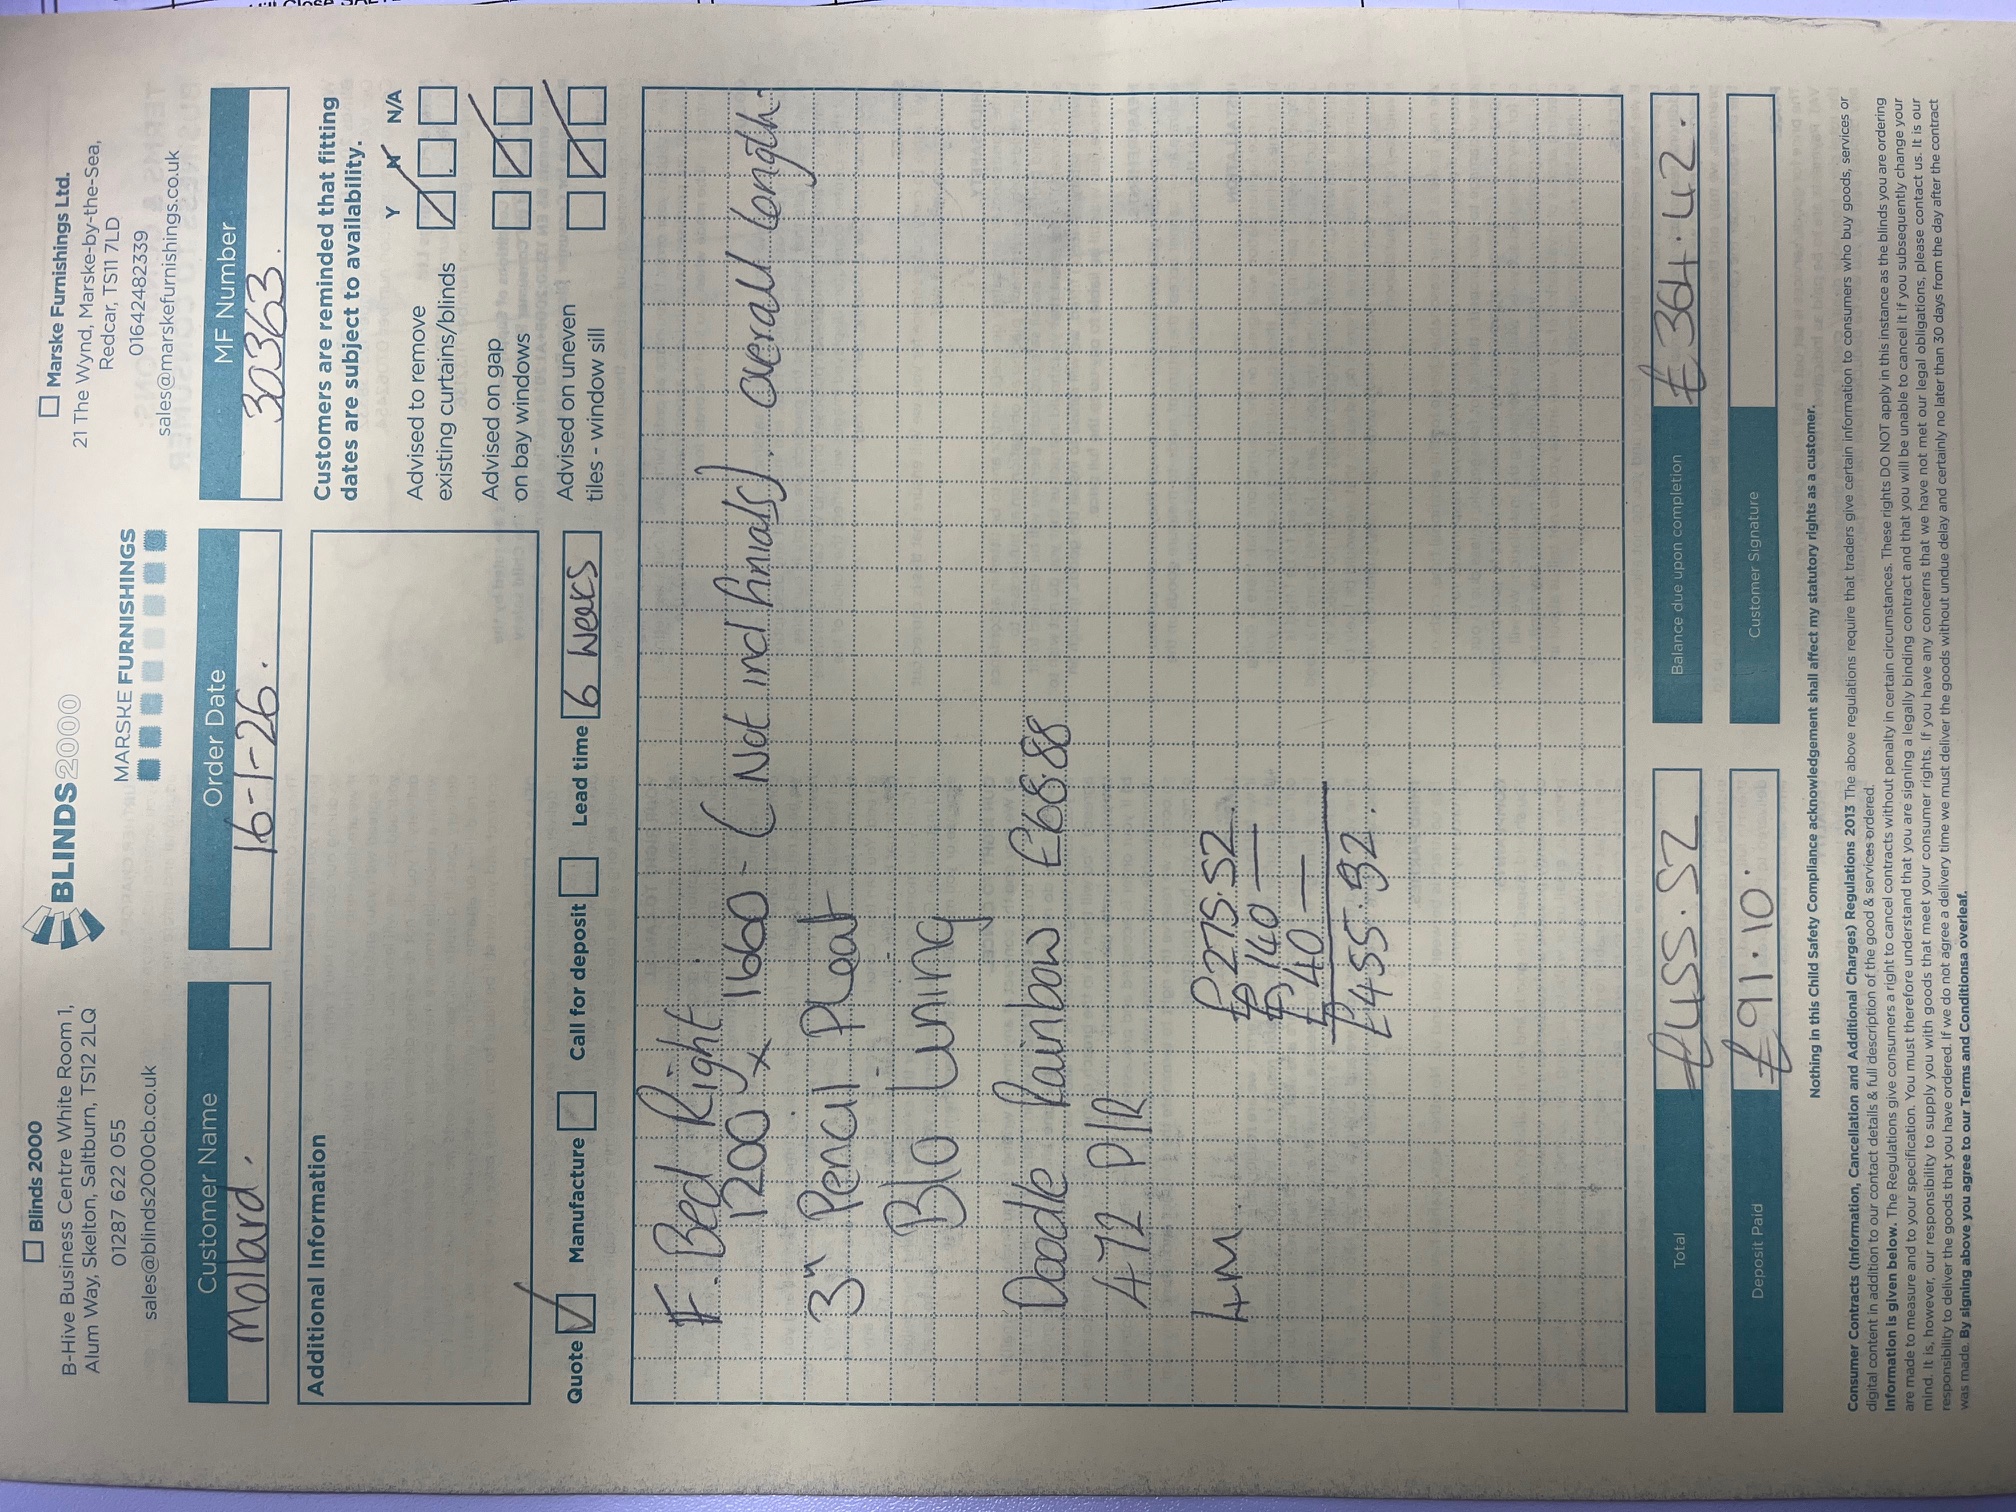 Blinds 2000
B-Hive Business Centre White Room 1,
Alum Way, Skelton, Saltburn, TS12 2LQ
01287 622 055
sales@blinds2000cb.co.uk
BLINDS2000
MARSKE FURNISHINGS
Marske Furnishings Ltd.
21 The Wynd, Marske-by-the-Sea,
Redcar, TS11 7LD
01642482339
sales@marskefurnishings.co.uk
Customer Name
Mollard.
Order Date
16-1-26.
MF Number
30363.
Additional Information
Customers are reminded that fitting
dates are subject to availability.
Y N N/A
Advised to remove
existing curtains/blinds
Advised on gap
on bay windows
Advised on uneven
tiles - window sill
Quote Manufacture Call for deposit Lead time 6 weeks
F. Bed Right
1200 x 1660 - (Not incl finials). overall length.
3" Pencil Pleat
B/O Lining
Doodle Rainbow £68.88
472 P/R
4M
£275.52
£140 —
£40 —
£455.52.
Total £455.52
Balance due upon completion £364.42.
Deposit Paid £91.10.
Customer Signature
Nothing in this Child Safety Compliance acknowledgement shall affect my statutory rights as a customer.
Consumer Contracts (Information, Cancellation and Additional Charges) Regulations 2013 The above regulations require that traders give certain information to consumers who buy goods, services or
digital content in addition to our contact details & full description of the good & services ordered.
Information is given below. The Regulations give consumers a right to cancel contracts without penalty in certain circumstances. These rights DO NOT apply in this instance as the blinds you are ordering
are made to measure and to your specification. You must therefore understand that you are signing a legally binding contract and that you will be unable to cancel it if you subsequently change your
mind. It is, however, our responsibility to supply you with goods that meet your consumer rights. If you have any concerns that we have not met our legal obligations, please contact us. It is our
responsibility to deliver the goods that you have ordered. If we do not agree a delivery time we must deliver the goods without undue delay and certainly no later than 30 days from the day after the contract
was made. By signing above you agree to our Terms and Conditionsa overleaf.